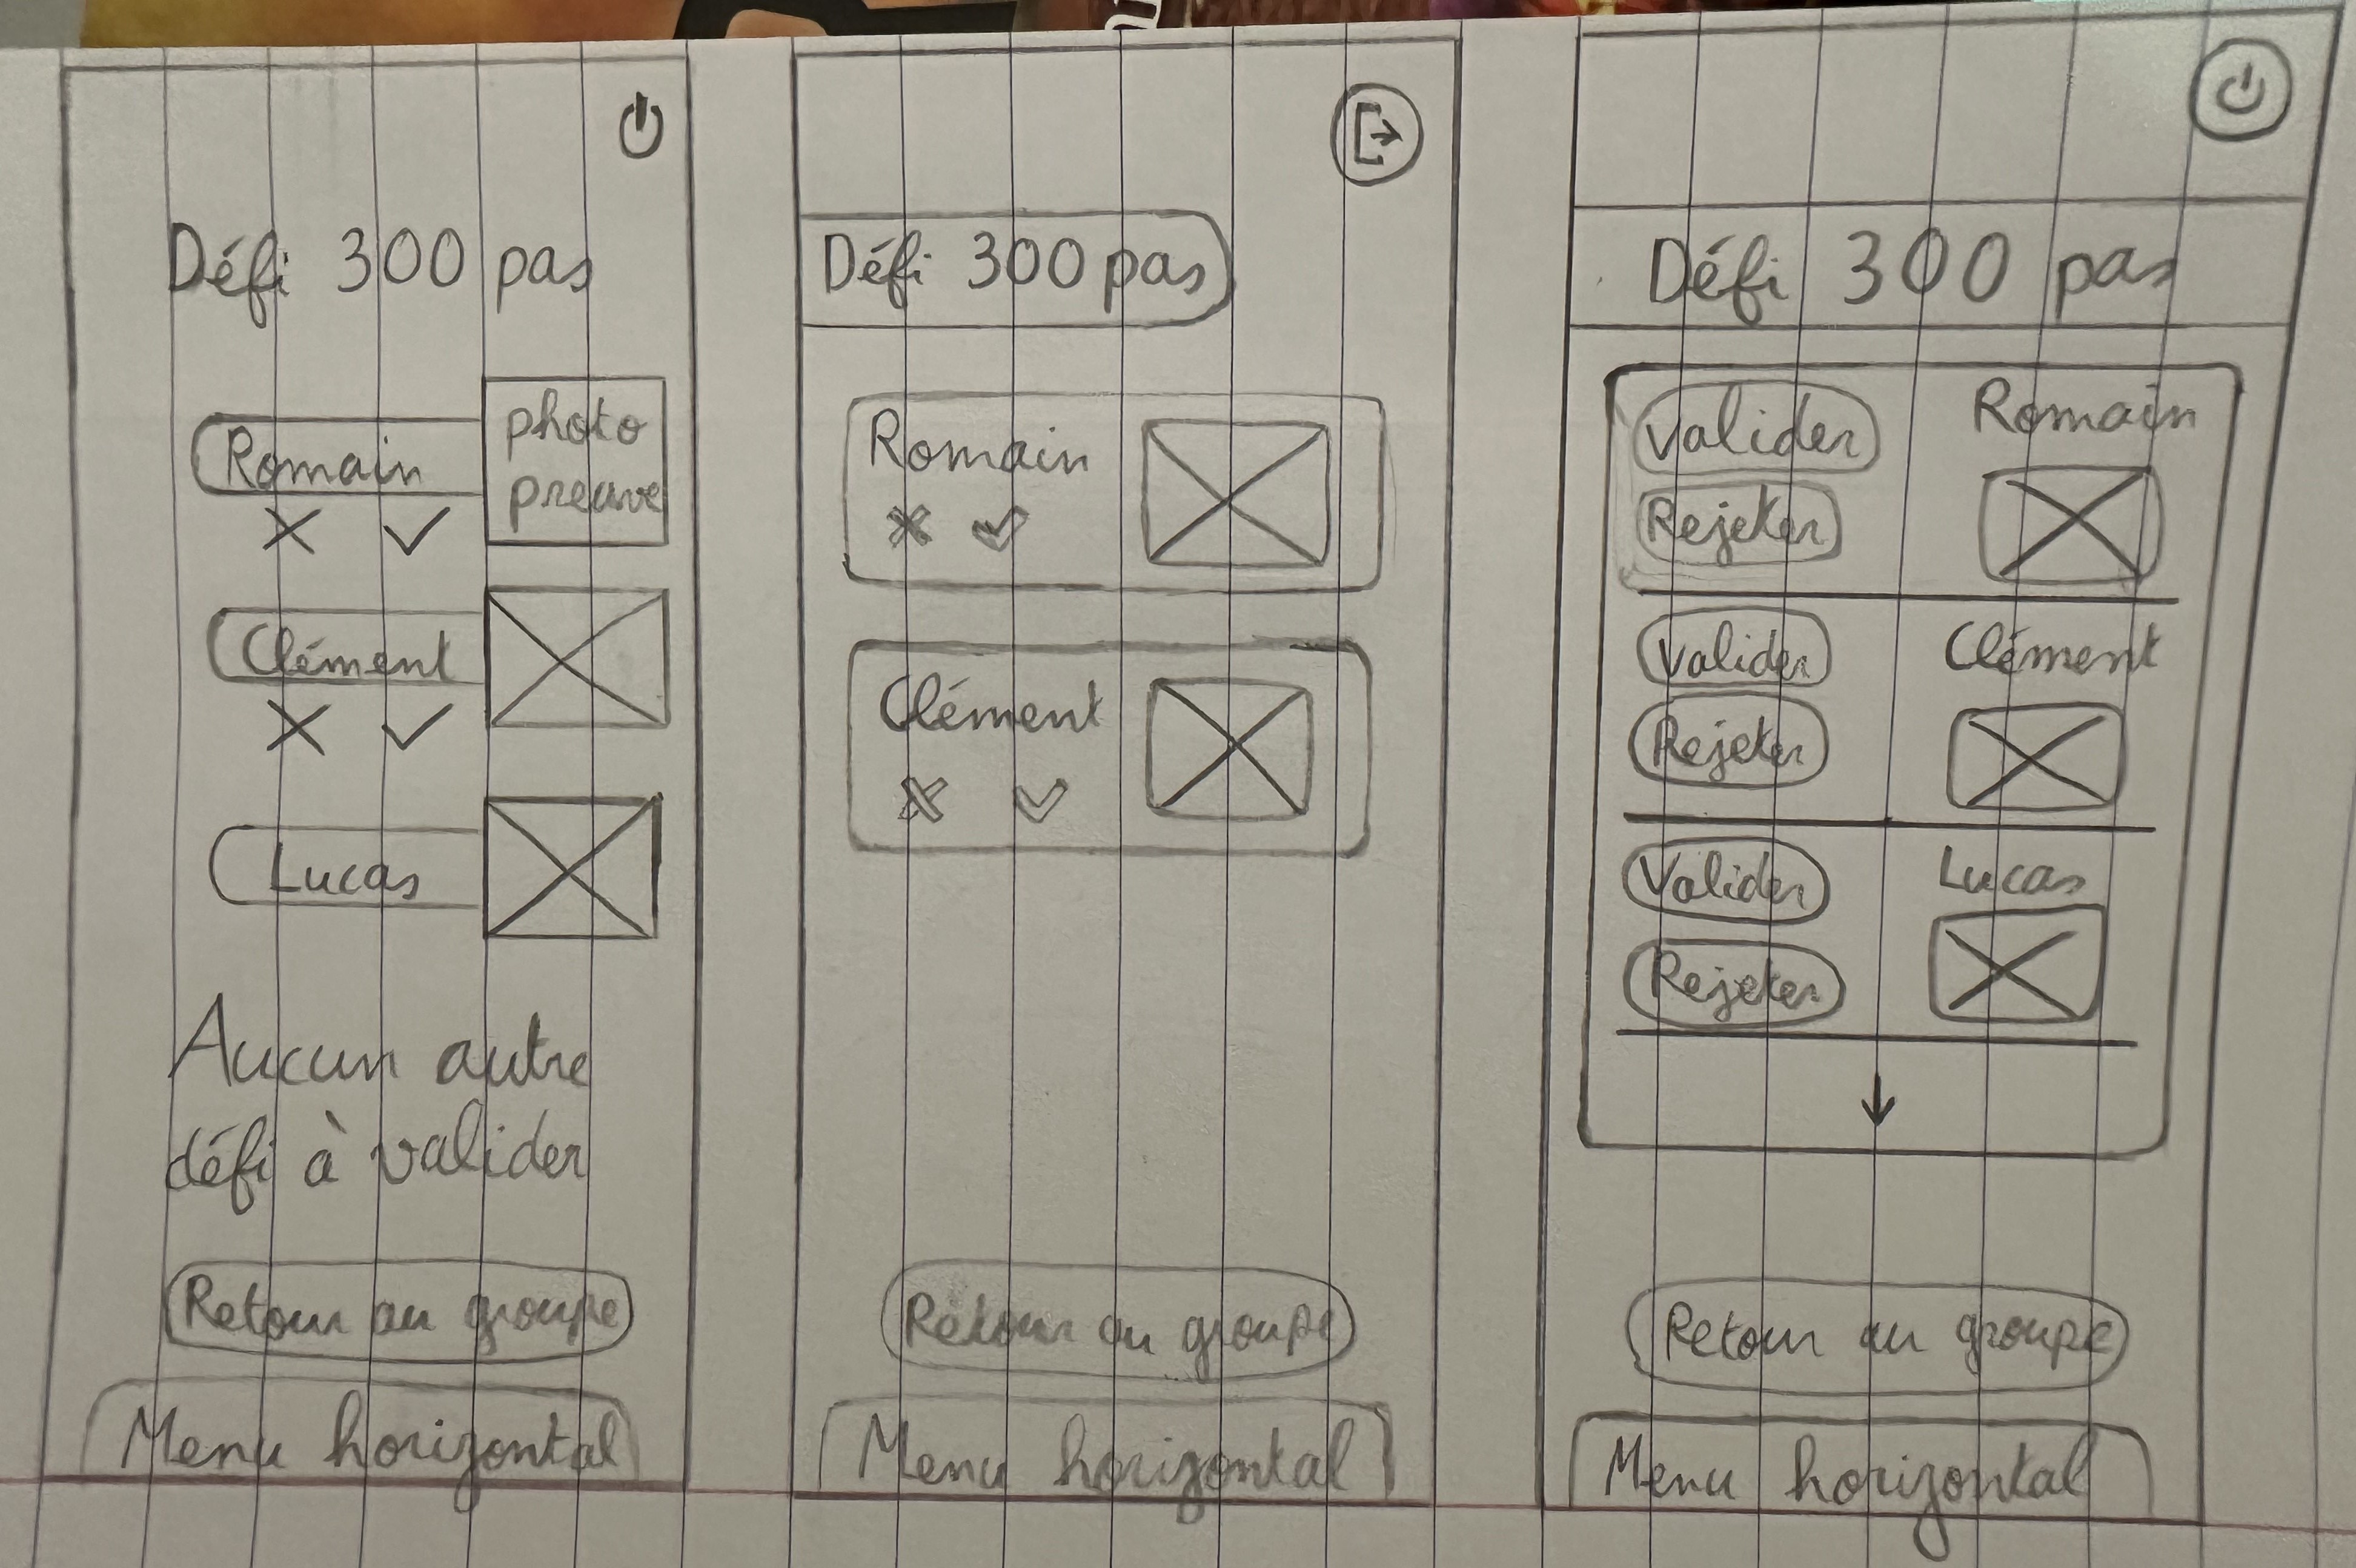 Défi 300 pas
Romain
photo
preuve
Clément
Lucas
Aucun autre
défi à valider
Retour au groupe
Menu horizontal
Défi 300 pas
Romain
Clément
Retour au groupe
Menu horizontal
Défi 300 pas
Valider Romain
Rejeter
Valider Clément
Rejeter
Valider Lucas
Rejeter
Retour au groupe
Menu horizontal